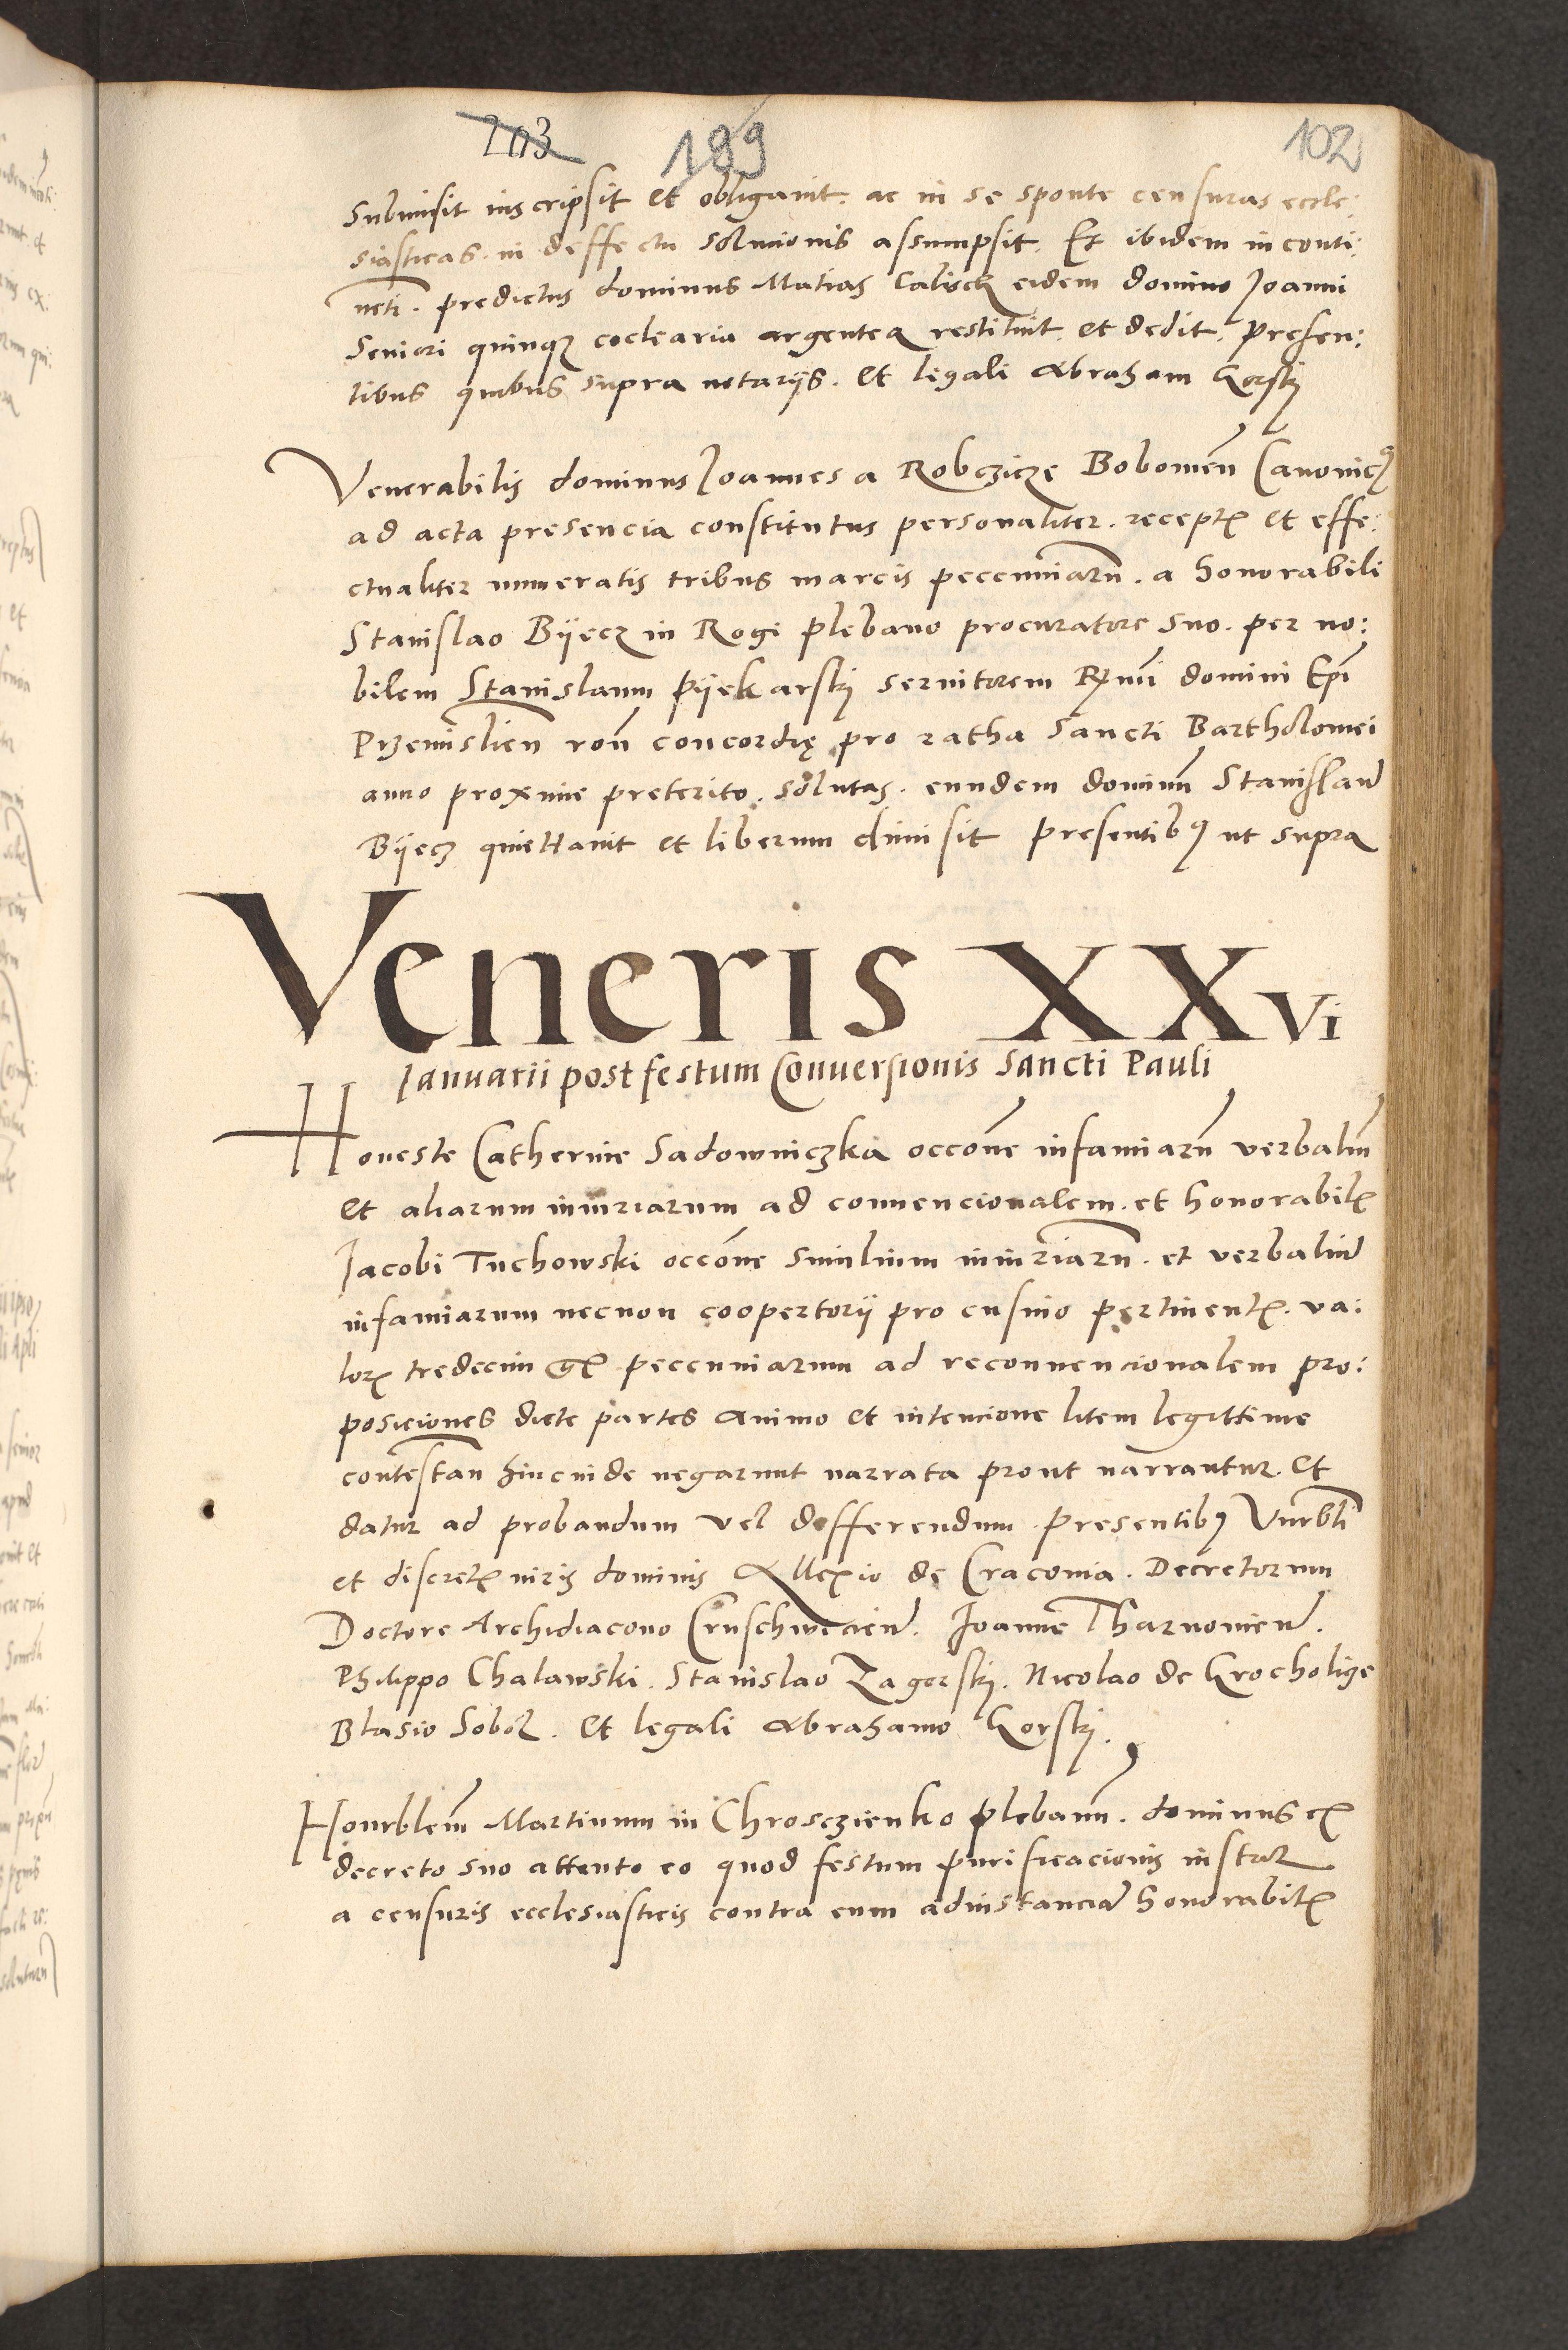 203 199 102
Submisit inscripsit et obligavit. ac in se sponte censuras eccle:
siasticas. in deffectu solucionis assumpsit. Et ibidem in conti:
neti. predictus dominus Matias Calisch eidem domino Joanni
Seniori quinqz coclearia argentea restituit. et dedit. Presen:
tibus quibus supra notarijs. et legali Abraham Gorskj
Venerabilis dominus Joannes a Robczicze Bobowien Canonicus
ad acta presencia constitutus personaliter. receptis et effe:
ctualiter numeratis tribus marcis peccuniaru. a honorabili
Stanislao Bijecz in Rogi plebano procuratore suo. per no:
bilem Stanislaum Pijekarskj servitorem Rmi domini Epi
Przemislien ron concordię pro ratha Sancti Bartholomei
anno proxime preterito. solutas. eundem dominu Stanislau
Bijecz quiettavit et liberum dimisit presentibus ut supra
Veneris XXvi
Januarii post festum Conversionis Sancti Pauli
Honeste Catherine Sadowniczka occone infamiaru verbaliu
et aliarum iniuriarum ad convencionalem. et honorabilis
Jacobi Tuchowski occone similium iniuriaru. et verbaliu
infamiarum necnon coopertorij pro cusino pertinentis. va:
loris tredecim gr peccuniarum ad reconvencionalem pro:
posiciones dicte partes animo et intencione litem legittime
contestan hincinde negarunt narrata prout narrantur. et
datur ad probandum vel defferendum. Presentibus Vnrbli
et discretis viris dominis Allexio de Cracovia. Decretorum
Doctore Archidiacono Cruschwicien. Joanne Tharnovien.
Philippo Chalawski. Stanislao Zagorskj. Nicolao de Grocholice
Blasio Sobol. et legali Abrahamo Gorskj.
Honrblem Martinum in Chrosczienko plebanu. dominus ex
decreto suo attento eo quod festum purificacionis instat
a censuris ecclesiasticis contra eum ad instancia honorabilis